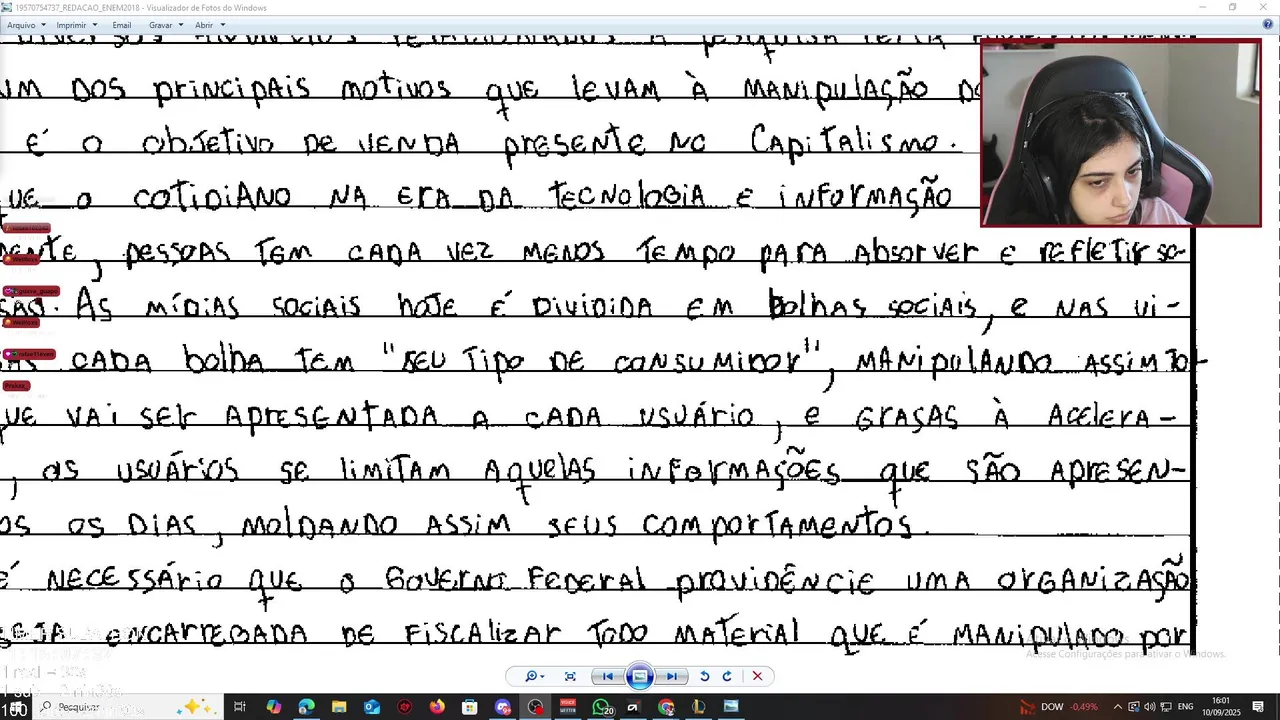 19570754737_REDACAO_ENEM2018 - Visualizador de Fotos do Windows
Arquivo Imprimir Email Gravar Abrir
UM DOS PRINCIPAIS MOTIVOS QUE LEVAM À MANIPULAÇÃO
É O OBJETIVO DE VENDA PRESENTE NO CAPITALISMO.
O COTIDIANO NA ERA DA TECNOLOGIA E INFORMAÇÃO
, PESSOAS TEM CADA VEZ MENOS TEMPO PARA ABSORVER E REFLETIR SO-
AS MÍDIAS SOCIAIS HOJE É DIVIDIDA EM BOLHAS SOCIAIS, E NAS VI-
CADA BOLHA TEM "SEU TIPO DE CONSUMIDOR", MANIPULANDO ASSIM TO-
QUE VAI SER APRESENTADA A CADA USUÁRIO, E GRAÇAS À ACELERA-
, OS USUÁRIOS SE LIMITAM AQUELAS INFORMAÇÕES QUE SÃO APRESEN-
OS OS DIAS, MOLDANDO ASSIM SEUS COMPORTAMENTOS.
É NECESSÁRIO QUE O GOVERNO FEDERAL PROVIDÊNCIE UMA ORGANIZAÇÃO
SEJA ENCARREGADA DE FISCALIZAR TODO MATERIAL QUE É MANIPULADO POR
Acesse Configurações para ativar o Windows.
Pesquisar
20
DOW -0,49%
ENG
16:01
10/09/2025